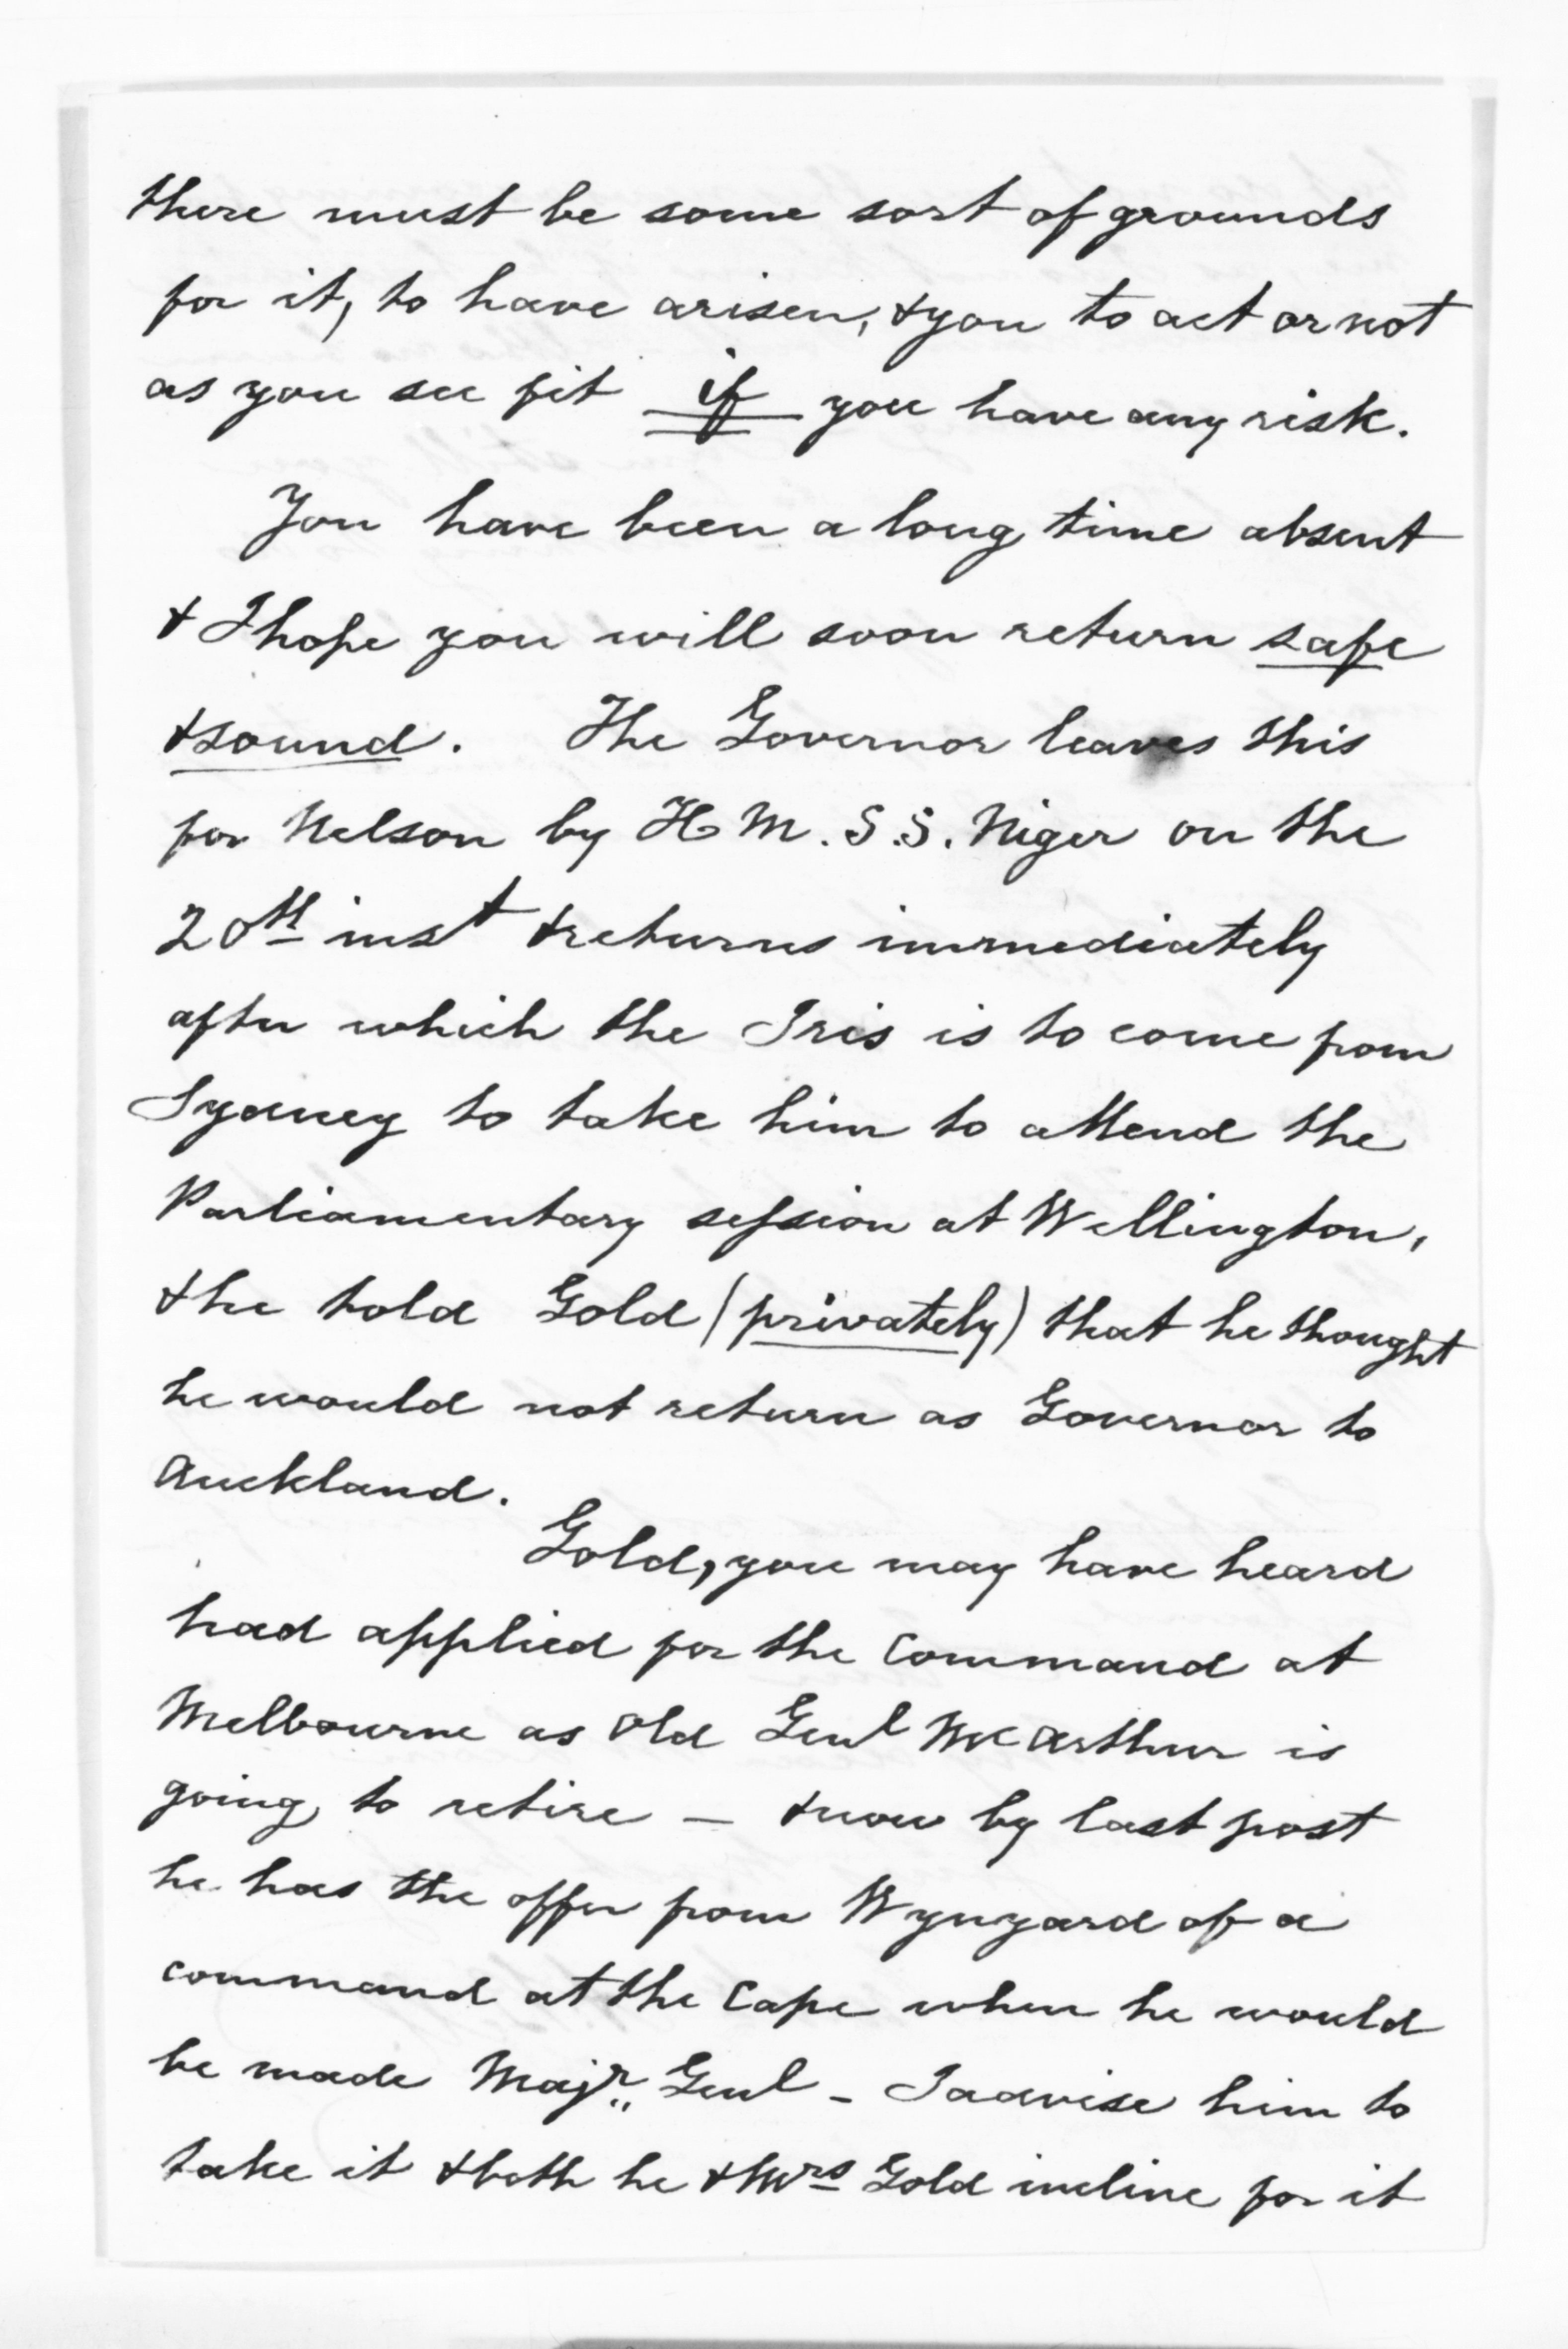 there must be some sort of grounds
for it, to have arisen, & you to act or not
as you see fit if you have any risk.
You have been a long time absent
& I hope you will soon return safe
& sound. The Governor leaves this
for Nelson by H M. S.S. Niger on the
20th inst & returns immediately
after which the Iris is to come from
Sydney to take him to attend the
Parliamentary session at Wellington,
& he told Gold (privately) that he thought
he would not return as Governor to
Auckland.
Gold, you may have heard
had applied for the Command at
Melbourne as Old Genl McArthur is
going to retire — & now by last post
he has the offer from Wynyard of a
command at the Cape when he would
be made Majr Genl - I advise him to
take it & both he & Mrs Gold incline for it